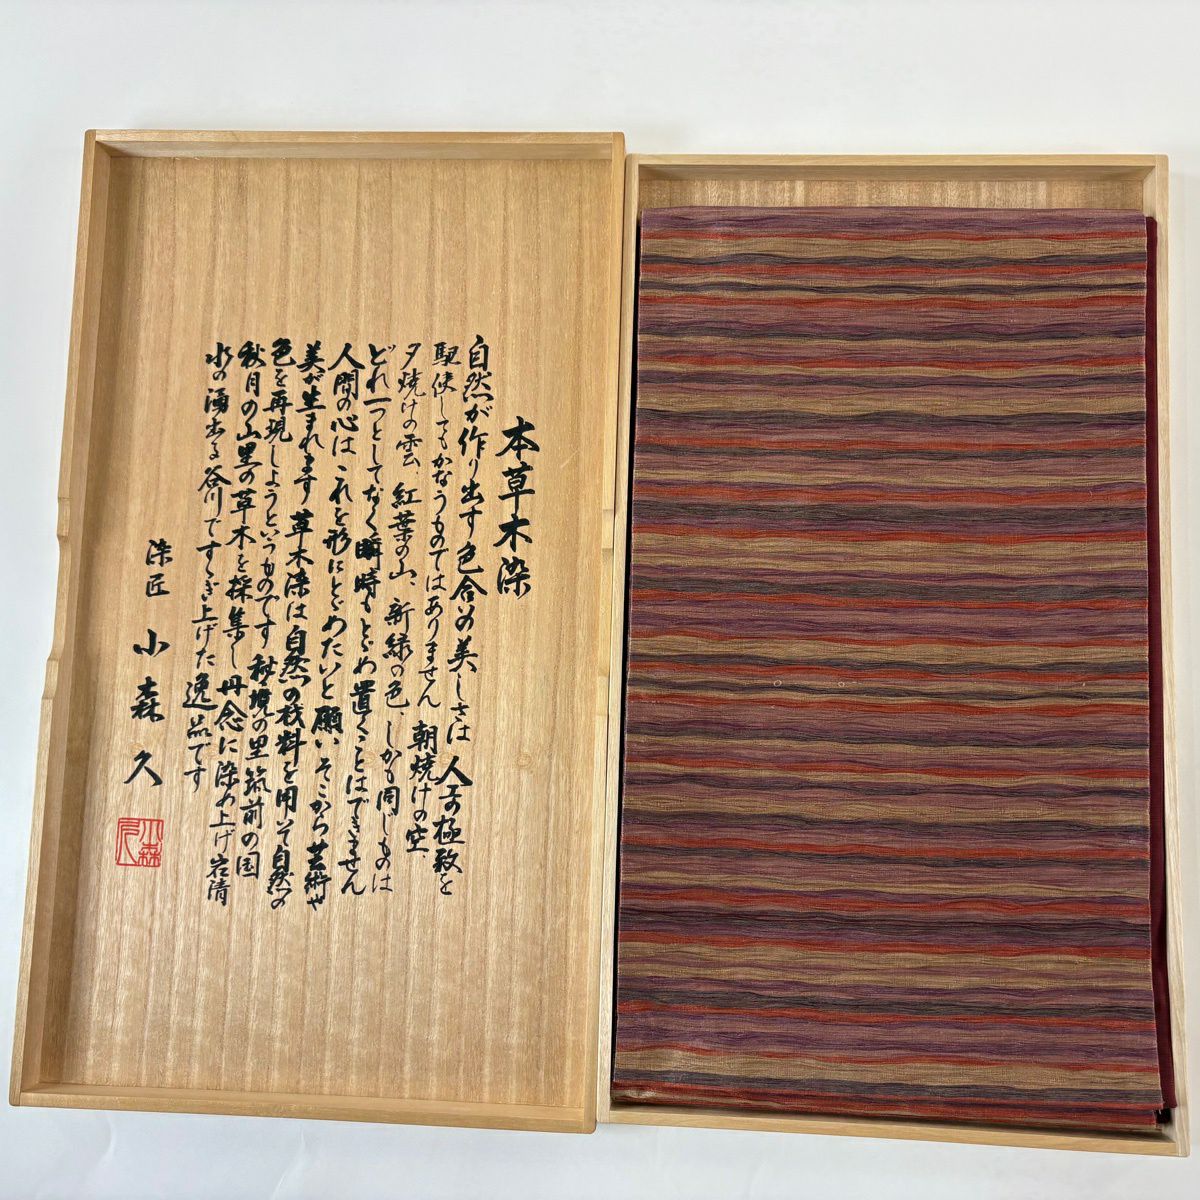 本草木染
自然が作り出す色合の美しさは 人工の極致を
駆使してもかなうものではありません 朝焼けの空、
夕焼けの雲 紅葉の山、新緑の色、しかも同じものは
どれ一つとしてなく瞬時もとどめ置くことはできません
人間の心は これを形にとどめたいと願い そこから芸術や
美が生まれます 草木染は自然の材料を用いて自然の
色を再現しようというものです 秘境の里 筑前の国
秋月の山里の草木を採集し丹念に染め上げ 岩清
水の湧出る谷川ですすぎ上げた逸品です
染匠 小森久
小森久